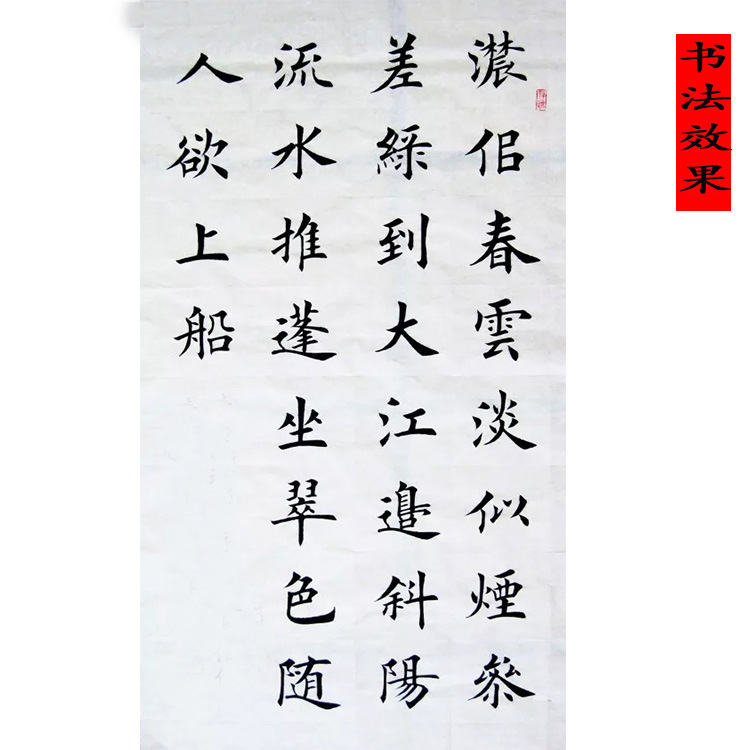 濃侣春雲淡似煙參
差綠到大江邉斜陽
流水推蓬坐翠色随
人欲上船
书法效果